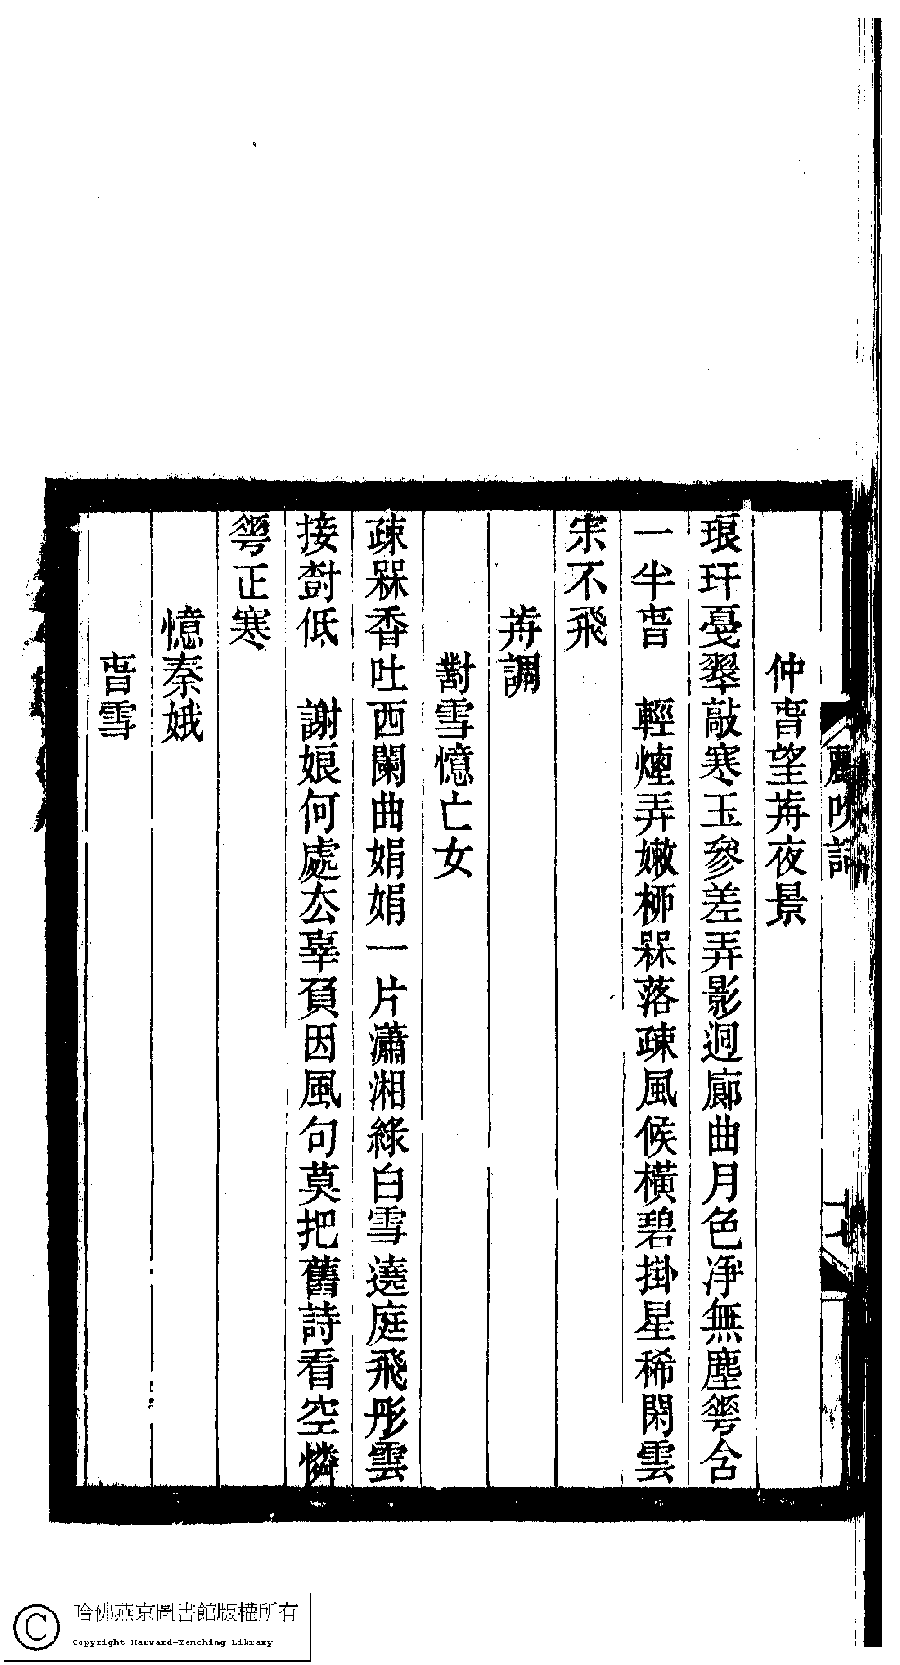 仲旾望歬夜景
琅玕戛翠敲寒玉參差弄影迴廊曲月色凈無塵𠌶含
一半旾　輕煙弄嫩柳槑落疎風候橫碧掛星稀閑雲
宋不飛
歬調
對雪憶亡女
疎槑香吐西闌曲娟娟一片瀟湘綠白雪遶庭飛彤雲
接尌低　謝娘何處厺辜負因風句莫把舊詩看空憐
𠌶正寒
憶秦娥
旾雪
哈佛燕京圖書館版權所有
Copyright Harvard-Yenching Library